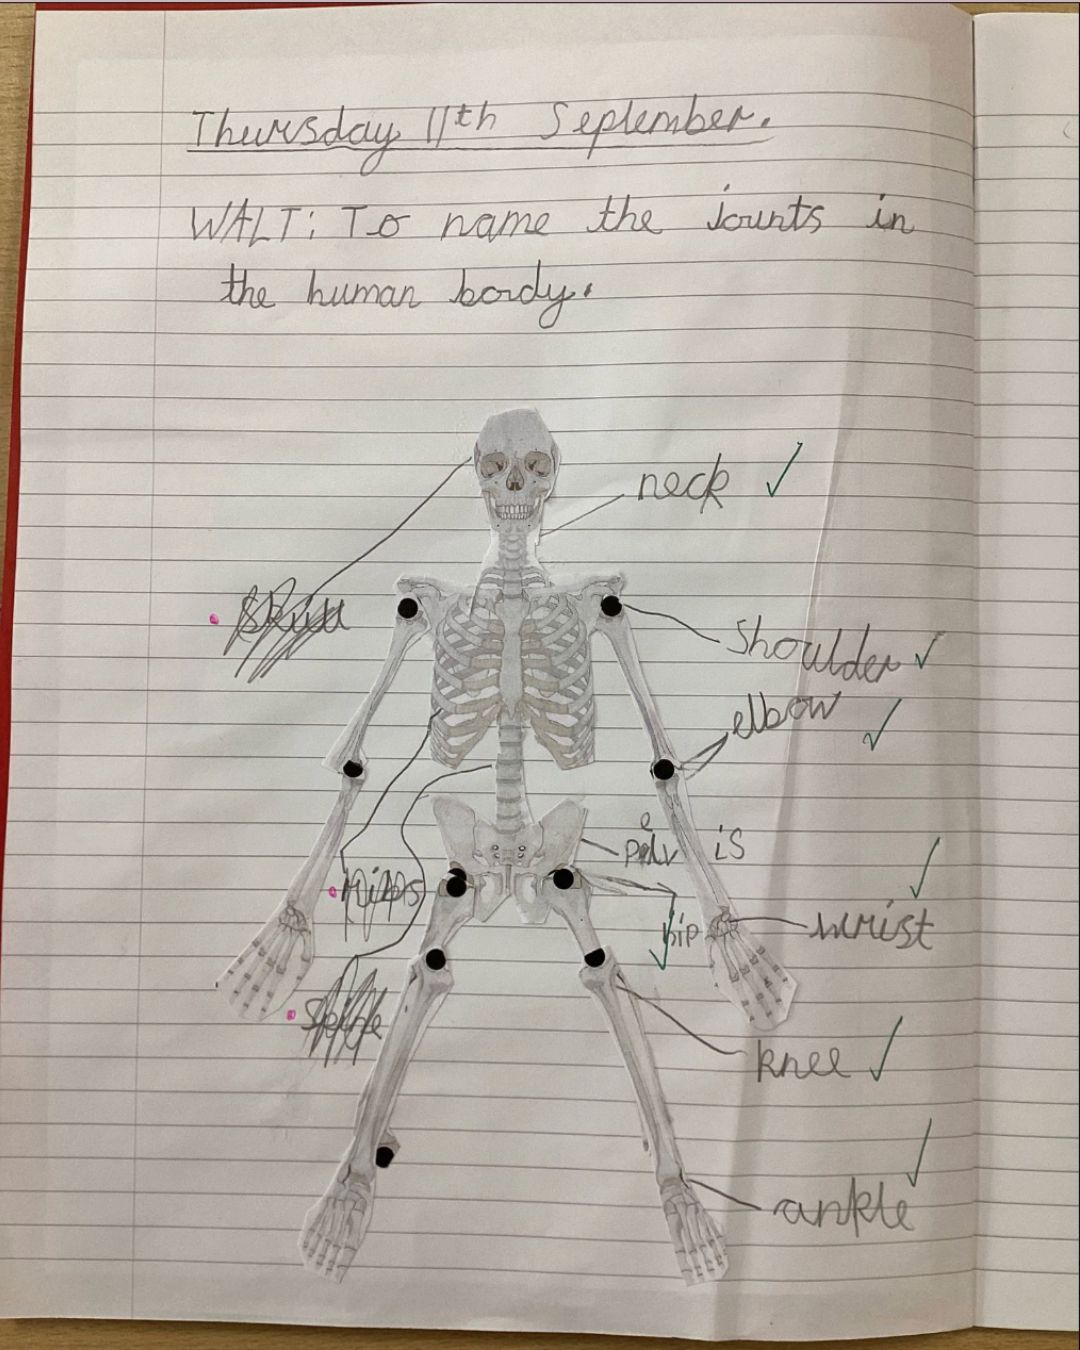 Thursday 11th September.
WALT: To name the jounts in
the human body.
neck
skull
shoulder
elbow
pelvis
ribs
hip
wrist
spine
knee
ankle